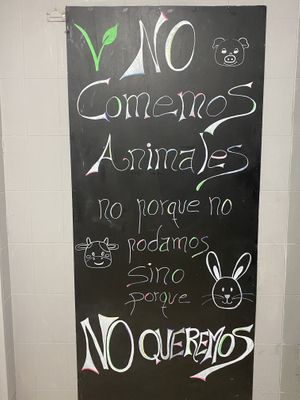 NO
Comemos
Animales
no porque no
podamos
sino
porque
NO QUEREMOS